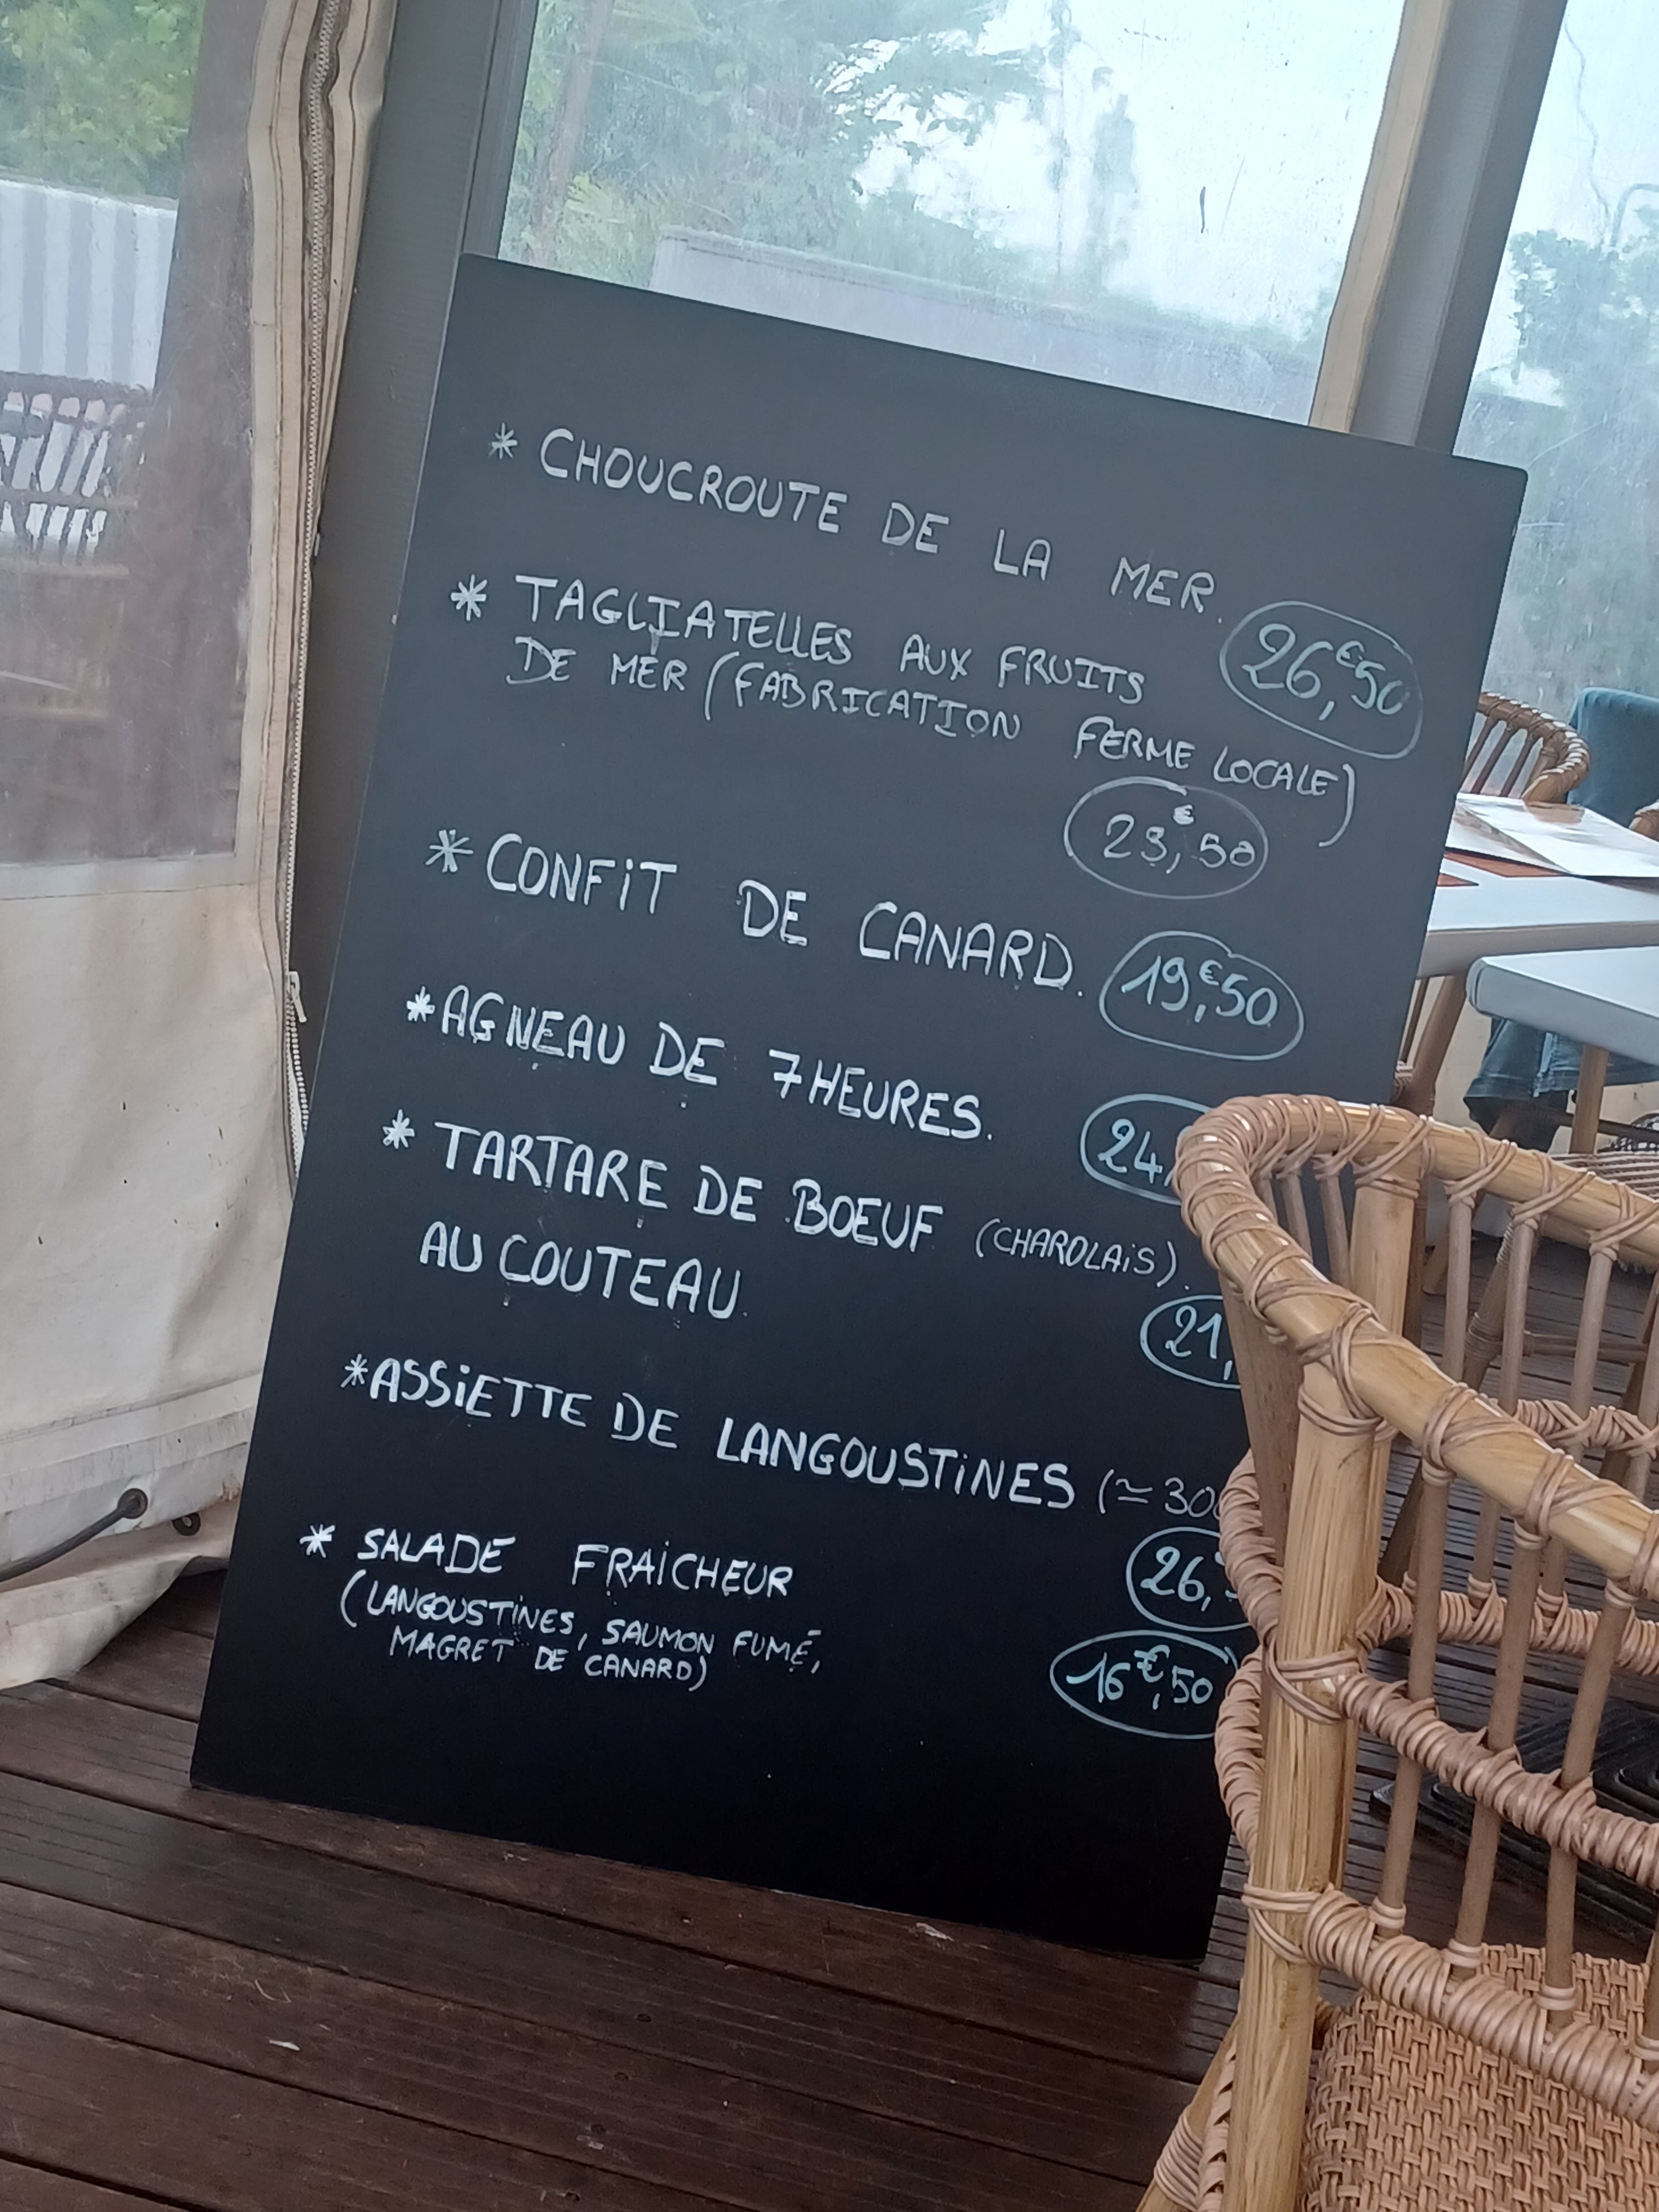 * CHOUCROUTE DE LA MER.
26,€50
* TAGLIATELLES AUX FRUITS
DE MER (FABRICATION FERME LOCALE)
23,€50
* CONFIT DE CANARD. 19,€50
* AGNEAU DE 7 HEURES. 24,
* TARTARE DE BOEUF (CHAROLAIS).
AU COUTEAU. 21,
* ASSIETTE DE LANGOUSTINES (≃ 300
26,
* SALADE FRAICHEUR
(LANGOUSTINES, SAUMON FUMÉ,
MAGRET DE CANARD) 16€,50